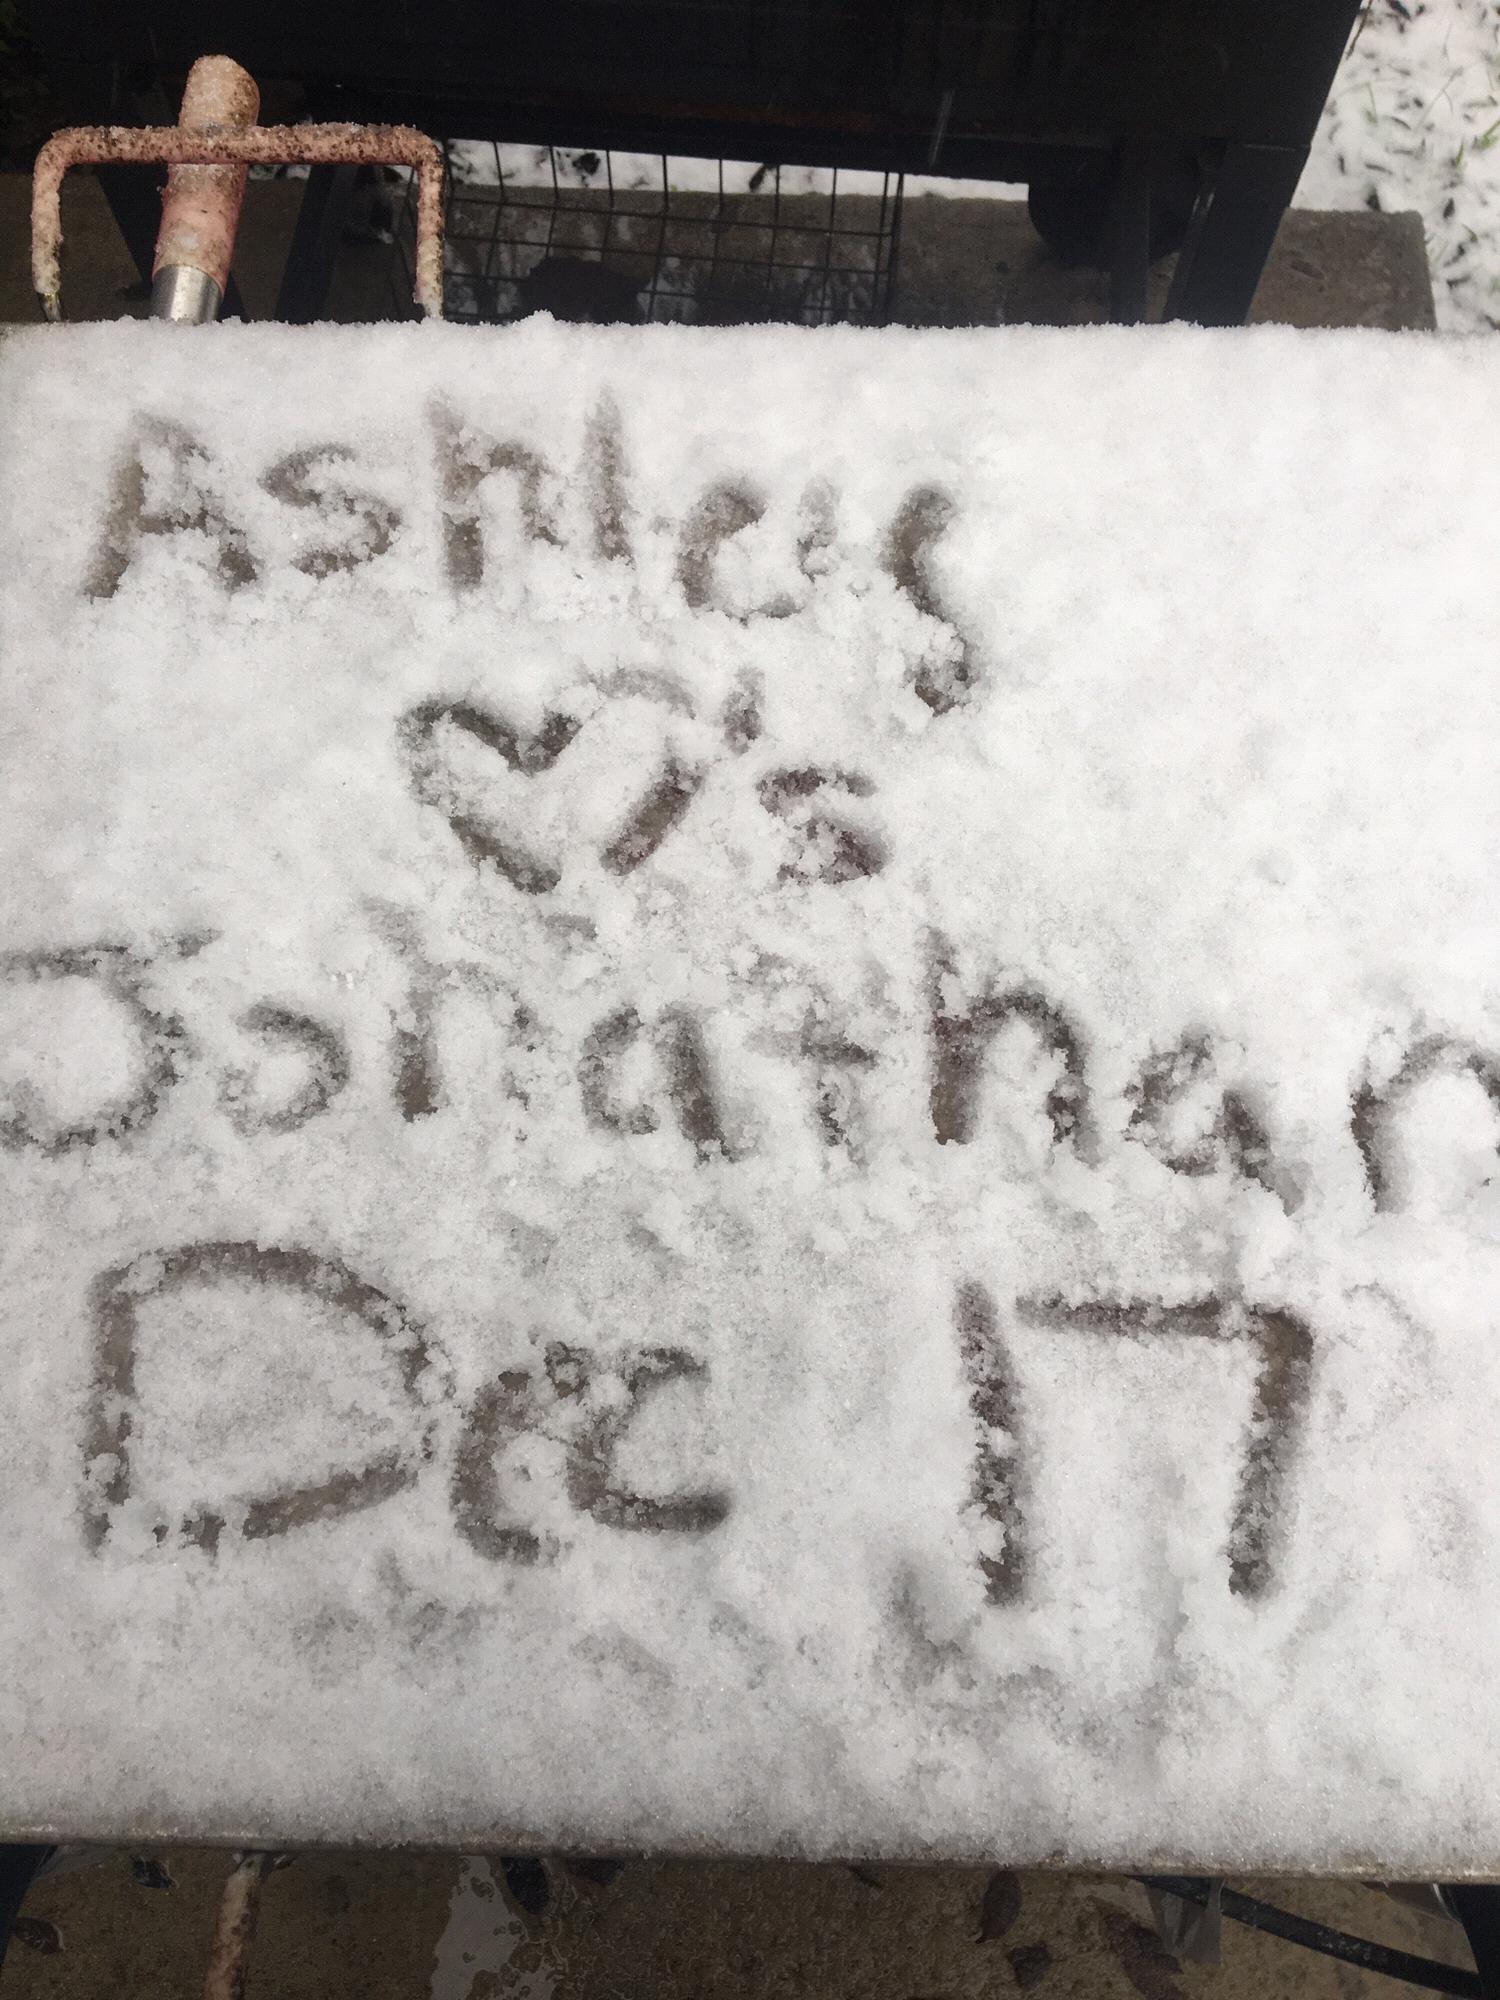 Ashley
♡'s
Johathan
Dec 17